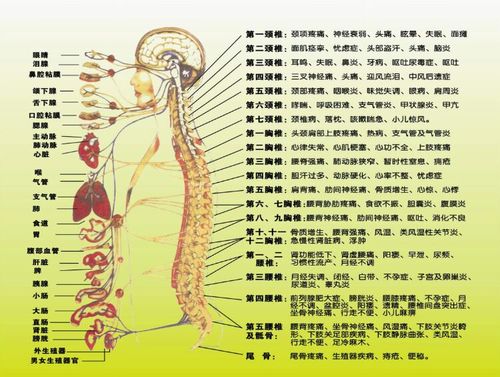 眼睛
泪腺
鼻腔粘膜
颌下腺
舌下腺
口腔粘膜
腮腺
主动脉
肺动脉
心脏
喉
气管
支气管
肺
食道
胃
腹部血管
肝脏
脾
胰腺
小肠
大肠
直肠
肾脏
膀胱
外生殖器
男女生殖器官
第一颈椎：颈项疼痛、神经衰弱、头痛、眩晕、失眠、面瘫
第二颈椎：面肌痉挛、忧虑症、头部盗汗、头痛、脑炎
第三颈椎：耳鸣、失眠、鼻炎、牙病、呕吐尿毒症、呕吐
第四颈椎：三叉神经痛、头痛、迎风流泪、中风后遗症
第五颈椎：颈部疼痛、咽喉炎、味觉失调、眼病、肩周炎
第六颈椎：哮喘、呼吸困难、支气管炎、甲状腺炎、甲亢
第七颈椎：颈椎病、落枕、咳嗽喘急、小儿惊风。
第一胸椎：头颈肩部上肢疼痛、热病、支气管及气管炎
第二胸椎：心律失常、心肌梗塞、心功不全、上肢疼痛
第三胸椎：腰脊强痛、肺动脉狭窄、暂时性窒息、痈疮
第四胸椎：胆汁过多、动脉硬化、心率不整、忧虑症
第五胸椎：肩背痛、肋间神经痛、骨质增生、心惊、心悸
第六、七胸椎：腰背胁肋疼痛、食欲不振、胆囊炎、腹膜炎
第八、九胸椎：腰背神经痛、肋间神经痛、呕吐、消化不良
第十.十一 骨质增生、腰脊强痛、风湿、类风湿性关节炎、
十二胸椎：急慢性肾脏病、浮肿
第一、二 肾功能低下、肾虚腰痛、阳萎、早泄、尿频、
腰椎：习惯性流产、月经不调
第三腰椎：月经失调、闭经、白带、不孕症、子宫及卵巢炎、
尿道炎、睾丸炎
第四腰椎：前列腺肥大症、膀胱炎、腰膝疼痛、不孕症、月经
不调、盆腔炎、阳萎、遗精、腰椎间盘突出症、
坐骨神经痛、行走不便、小儿麻痹
第五腰椎 腰脊疼痛、坐骨神经痛、风湿痛、下肢关节炎畸
及骶骨：形、下肢关足部疾病、下肢静脉曲张、类风湿、
行走不便、足冷麻木、
尾骨：尾骨疼痛、生殖器疾病、痔疮、便秘。